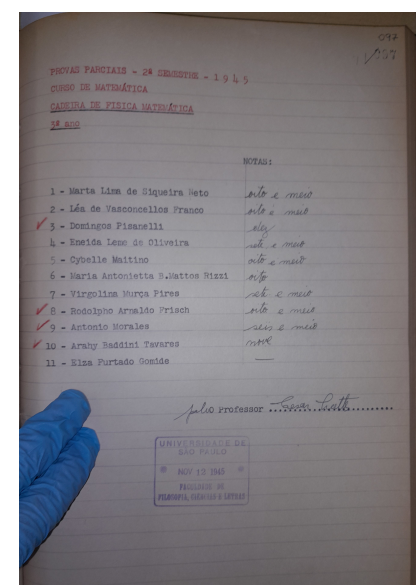 097
PROVAS PARCIAIS - 2º SEMESTRE - 1945
CURSO DE MATEMÁTICA
CADEIRA DE FISICA MATEMÁTICA
3º ano
NOTAS:
1 - Marta Lima de Siqueira Neto oito e meio
2 - Léa de Vasconcellos Franco oito e meio
3 - Domingos Pisanelli dez
4 - Eneida Leme de Oliveira sete e meio
5 - Cybelle Maitino oito e meio
6 - Maria Antonietta B.Mattos Rizzi oito
7 - Virgolina Murça Pires sete e meio
8 - Rodolpho Arnaldo Frisch oito e meio
9 - Antonio Morales seis e meio
10 - Arahy Baddini Tavares nove
11 - Elza Furtado Gomide —
pelo Professor
UNIVERSIDADE DE
SÃO PAULO
NOV 12 1945
FACULDADE DE
FILOSOFIA, CIÊNCIAS E LETRAS